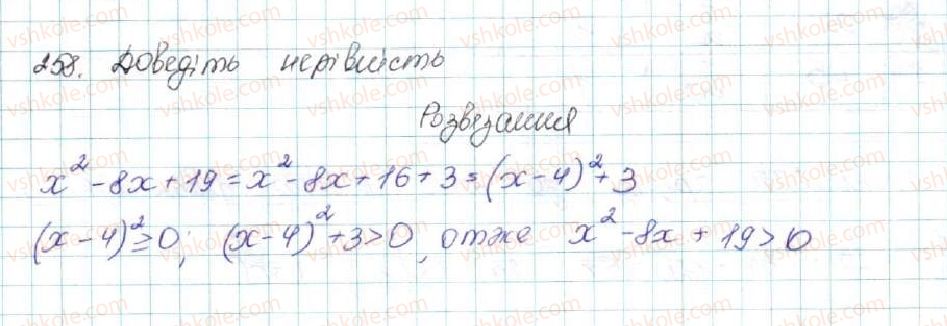 258. Доведіть нерівність
Розвязання
x² - 8x + 19 = x² - 8x + 16 + 3 = (x - 4)² + 3
(x - 4)² ≥ 0; (x - 4)² + 3 > 0, отже x² - 8x + 19 > 0